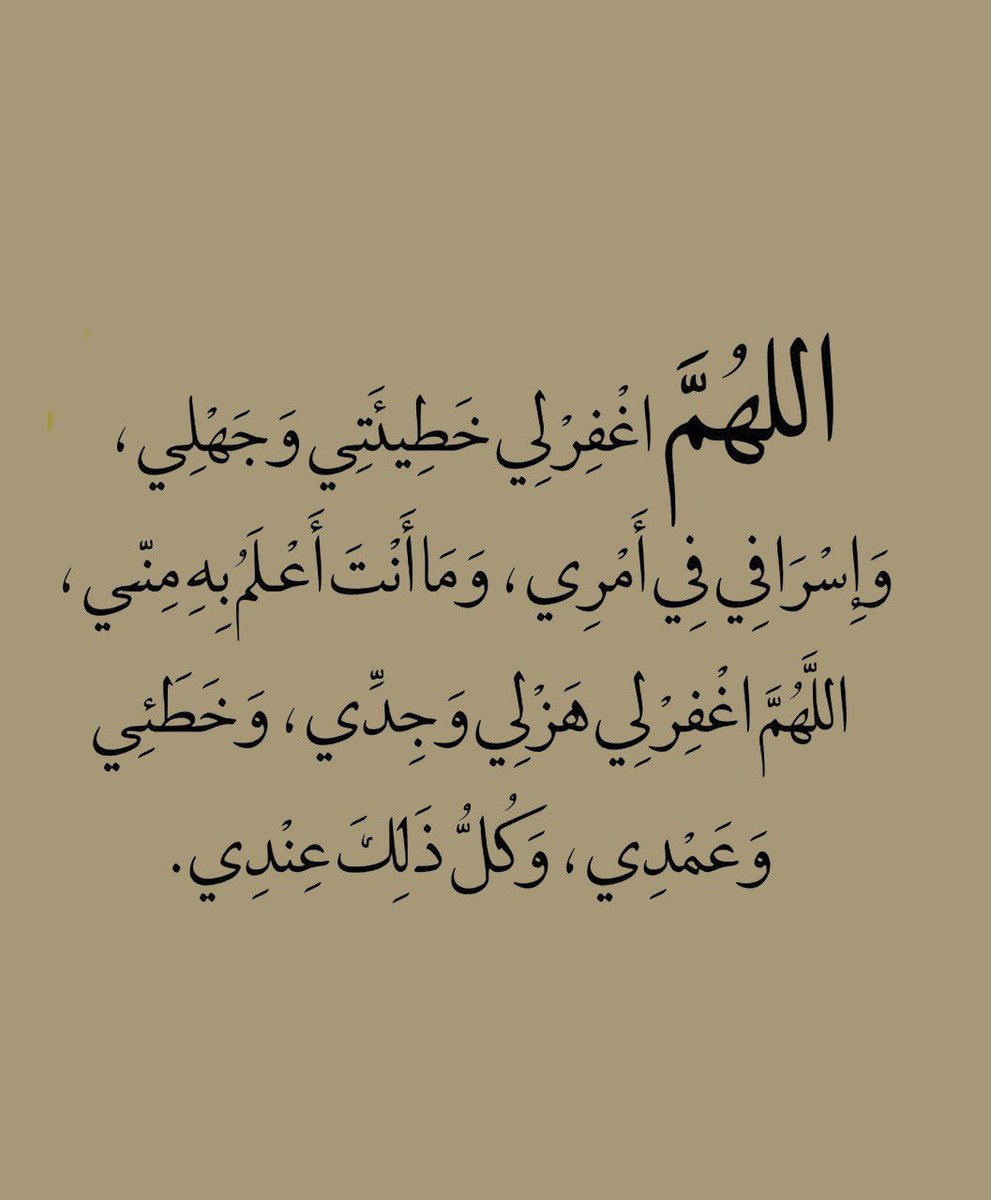 اللهُمَّ اغْفِرْ لِي خَطِيئَتِي وَجَهْلِي ،
وَإِسْرَافِي فِي أَمْرِي ، وَمَا أَنْتَ أَعْلَمُ بِهِ مِنِّي ،
اللَّهُمَّ اغْفِرْ لِي هَزْلِي وَجِدِّي ، وَخَطَئِي
وَعَمْدِي ، وَكُلُّ ذَلِكَ عِنْدِي .